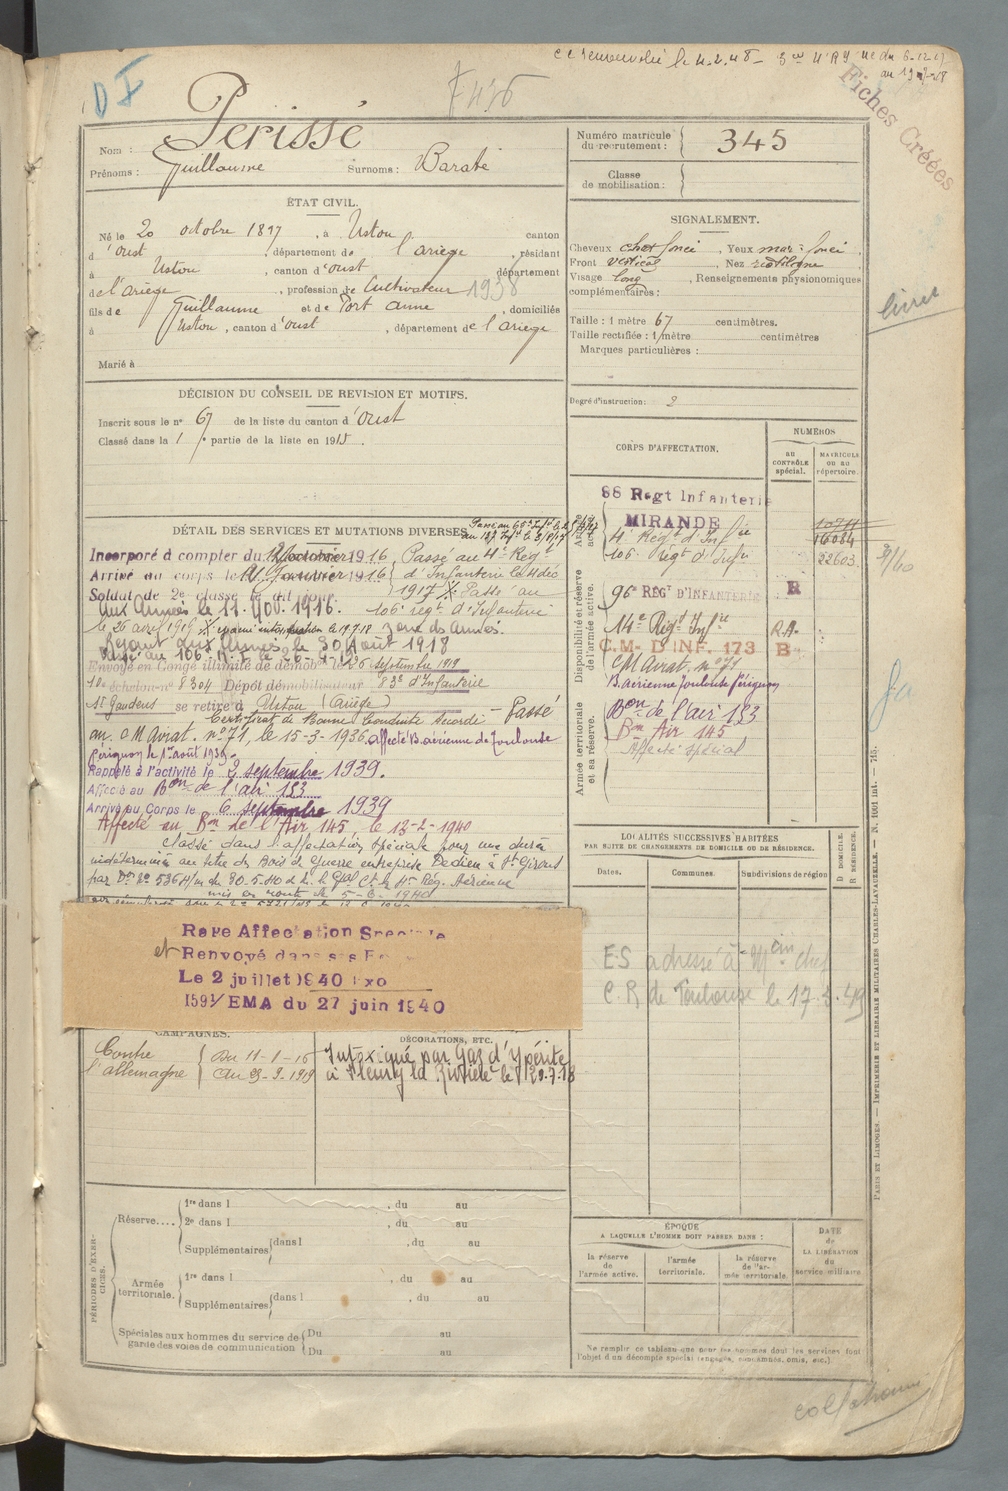 D I
Fiches Créées
Périssé
Nom :
Prénoms : Guillaume Surnoms : Baraté
Numéro matricule du recrutement : 345
Classe de mobilisation :
ÉTAT CIVIL.
Né le 20 octobre 1897, à Ustou canton
d'Oust, département de l'ariège, résidant
à Ustou, canton d'oust département
de l'ariège, profession de Cultivateur 1938
fils de Guillaume et de Port anne, domiciliés
à Ustou, canton d'oust, département de l'ariege
Marié à
SIGNALEMENT.
Cheveux chat. foncé, Yeux mar. foncé
Front vertical, Nez rectiligne
Visage long, Renseignements physionomiques
complémentaires :
Taille : 1 mètre 67 centimètres.
Taille rectifiée : 1 mètre centimètres
Marques particulières :
Degré d'instruction : 2
livret
DÉCISION DU CONSEIL DE REVISION ET MOTIFS.
Inscrit sous le n° 67 de la liste du canton d'Oust
Classé dans la 1re partie de la liste en 1915.
DÉTAIL DES SERVICES ET MUTATIONS DIVERSES.
Incorporé à compter du 1916, Passé au 4e Régt
Arrivé au corps le 1916 d'Infanterie le 11 déc
Soldat de 2e classe le dit jour. 1917 Passé au
Aux Armées le 11. Nov. 1916. 106e régt d'Infanterie
le 26 avril 1919 zone des Armées.
Rejoint aux Armées le 30 Août 1918
Envoyé en congé illimité de démob. le 26 septembre 1919
10e échelon n° 8304 Dépôt démobilisateur 83e d'Infanterie
St Gaudens se retire à Ustou (Ariège)
Certificat de Bonne Conduite accordé - Passé
au CM Avrat. n° 71, le 15-3-1936. affecté B. aérienne de Toulouse
Pérignon le 1er août 1936.
Rappelé à l'activité le 2 septembre 1939.
Affecté au Bon de l'air 133
Arrivé au Corps le 6 septembre 1939
Affecté au Bon de l'Air 145, le 13-2-1940
Classé dans l'affectation spéciale pour une durée
indéterminée au titre des Bois de Guerre entreprise Dedieu à St Girons
mis en route le 5-6-1940
Raye Affectation Speciale
et Renvoyé dans ses
Le 2 juillet 1940
1591/EMA du 27 juin 1940
CORPS D'AFFECTATION.
NUMÉROS
au CONTRÔLE spécial.
MATRICULE ou au répertoire.
Disponibilité et réserve de l'armée active.
Armée territoriale et sa réserve.
88 Regt Infanterie
MIRANDE
4e Régt d'Infie 16084
106e régt d'Infie 22603
96e REGT D'INFANTERIE R
14e Régt Infie R.A.
C.M. D'INF. 173 B
CM Avrat. n° 71
B. aérienne Toulouse Pérignon
Bon de l'air 133
Bon Air 145
Affecté spécial
LOCALITÉS SUCCESSIVES HABITÉES
PAR SUITE DE CHANGEMENTS DE DOMICILE OU DE RÉSIDENCE.
Dates. Communes. Subdivisions de région
D DOMICILE.
R RÉSIDENCE.
CAMPAGNES.
Contre l'allemagne
Du 11-1-16
Au 23-9-1919
DÉCORATIONS, ETC.
Intoxiqué par Gaz d'ypérite
à Fleury la Rivière le 29.7.18
PÉRIODES D'EXERCICES.
Réserve....
1re dans l , du au
2e dans l , du au
Supplémentaires dans l , du au
Armée territoriale.
1re dans l , du au
Supplémentaires dans l , du au
Spéciales aux hommes du service de garde des voies de communication
Du au
Du au
ÉPOQUE
A LAQUELLE L'HOMME DOIT PASSER DANS :
la réserve de l'armée active.
l'armée territoriale.
la réserve de l'armée territoriale.
DATE de LA LIBÉRATION du service militaire.
Ne remplir ce tableau que pour les hommes dont les services font l'objet d'un décompte spécial (engagés, condamnés, omis, etc.)
PARIS ET LIMOGES. — IMPRIMERIE ET LIBRAIRIE MILITAIRES CHARLES-LAVAUZELLE. — N. 1001 int. — 715.